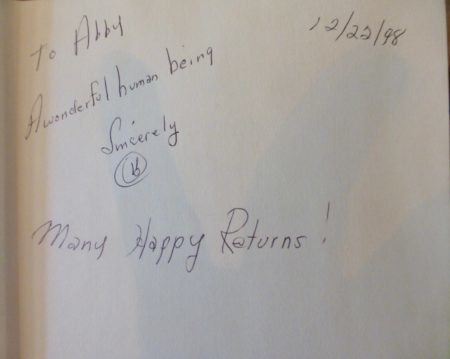 12/22/98
To Abby
A wonderful human being
Sincerely
Many Happy Returns!